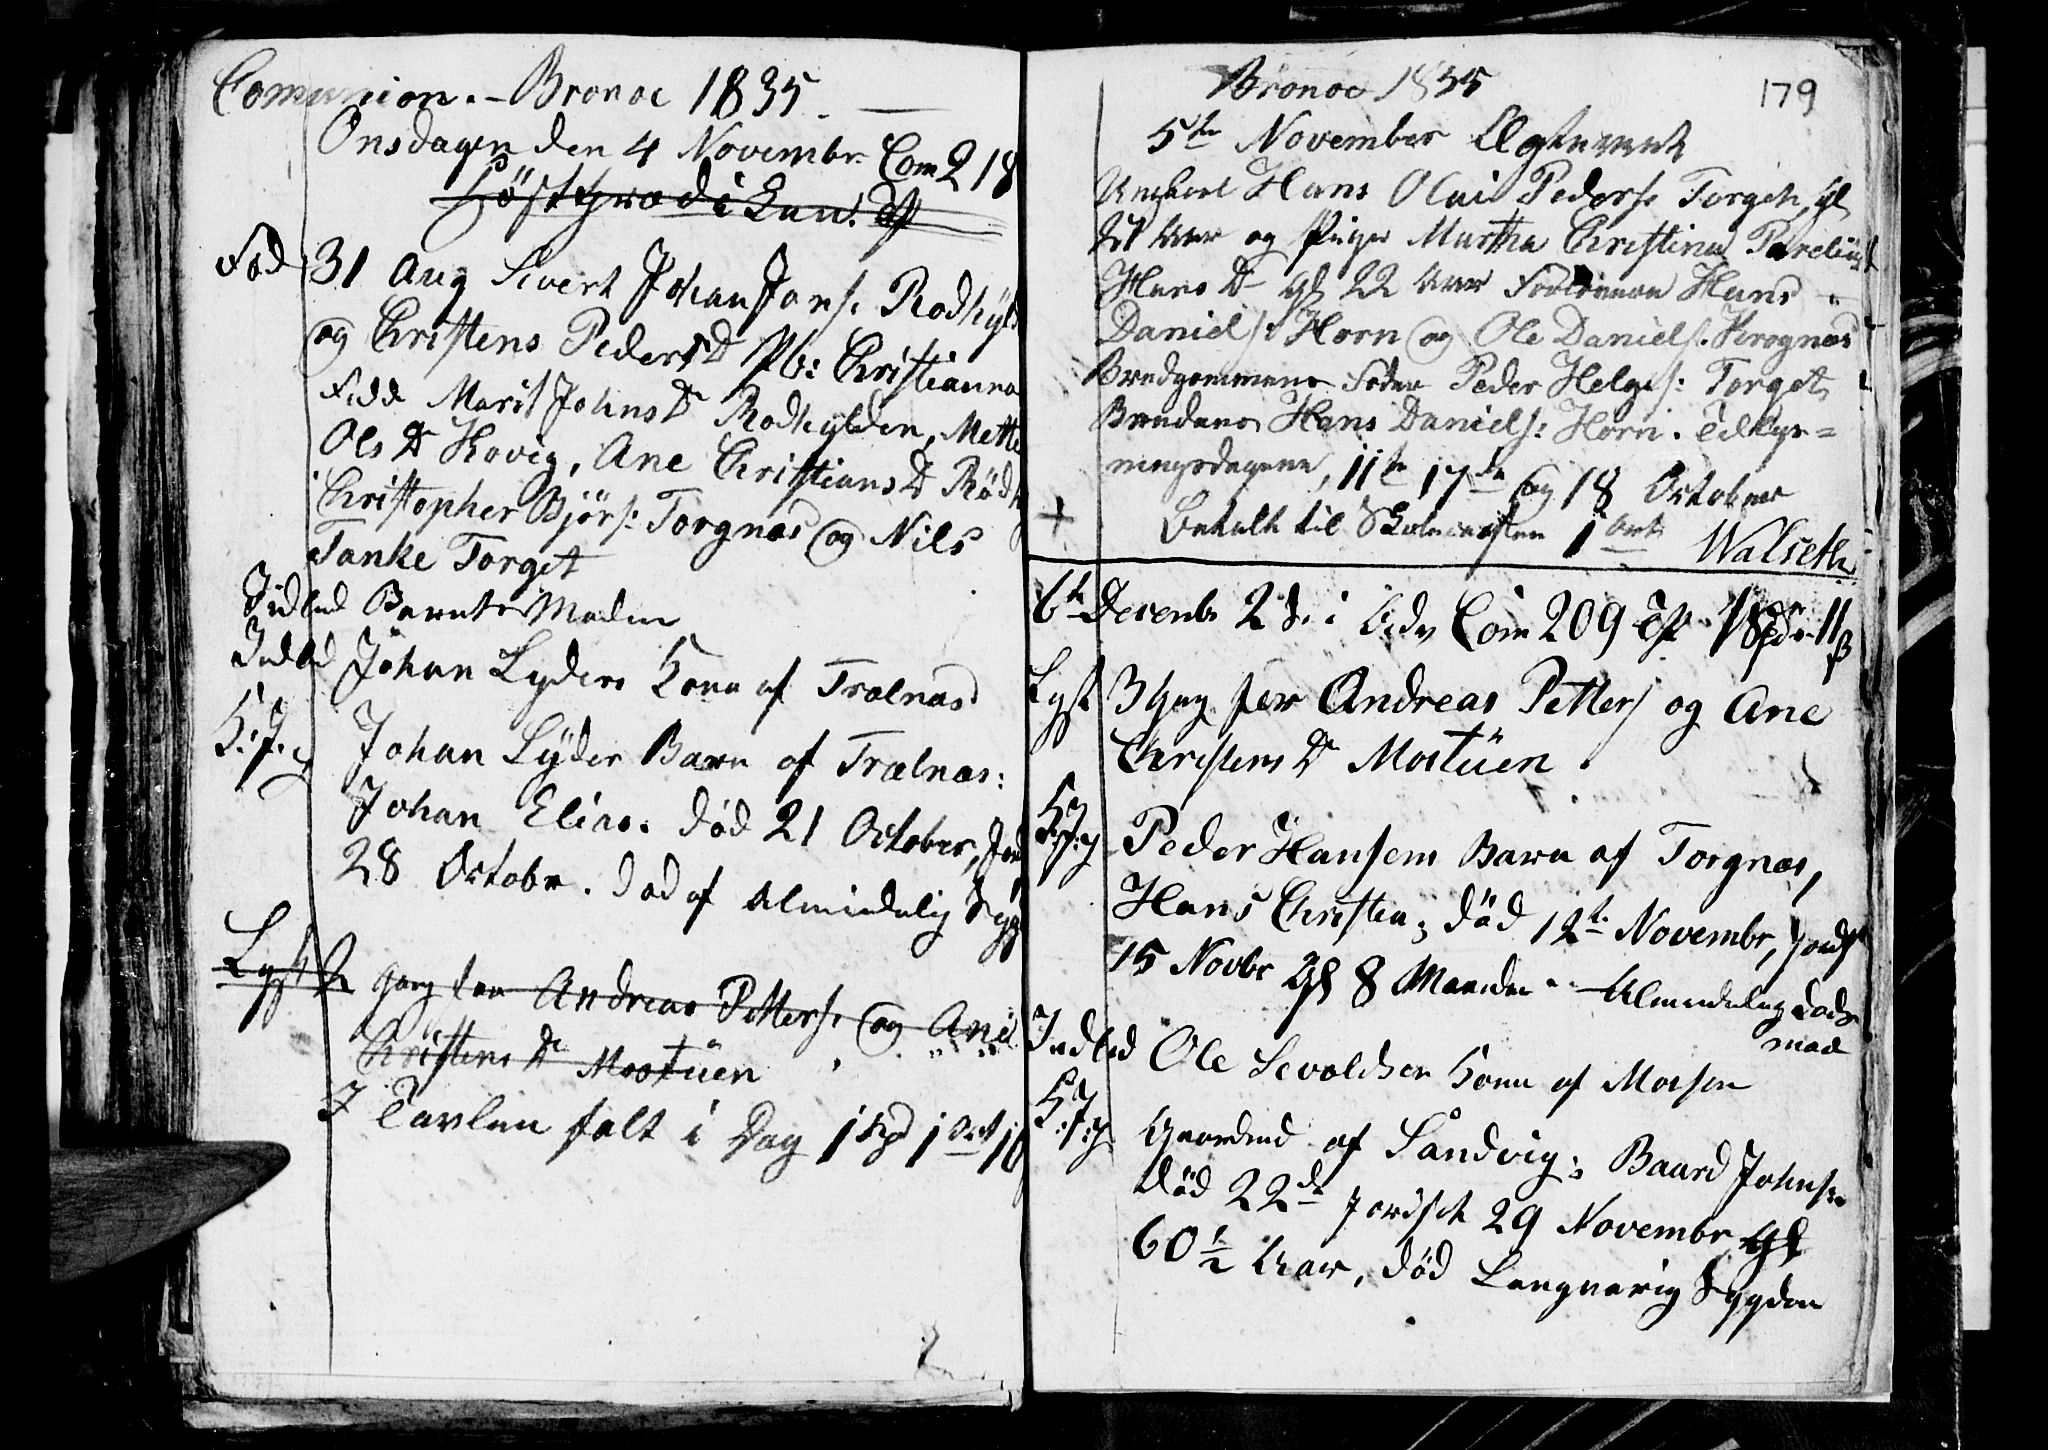 Comunion. – Bronoe 1835.
Onsdagen den 4 Novembr. Com 218
Höst
Fød 31 Aug Sivert Johan Jons: Rodhyld
og Christens Peders D Pb: Christianna
Fadd Marit Johns D Rodhylden, Mette
Ols D Hovig, Ane Christians D Rød
Christopher Björs: Torgnæs og Nils
Tanke Torget
Indled Barnets Moder
Indled Johan Lyders Kone af Trælnæs
H: J: g Johan Lyder Barn af Trælnæs:
Johan Elias. død 21 October, Jord
28 Octobr. død af Almindelig Syg
Lyst 2 gang for Andreas Petters: og Ane
Christens D Mostüen
I Tavlen falt i Dag 1 Spd 1 Ort 16
Bronoe 1835
179
5te November Ægteviet
Ungkarl Hans Olai Peders: Torget, gl
Aar og Piige Martha Christina Parelius
Hans D gl 22 Aar Forlovere Hans
Daniels: Horn og Ole Daniels. Krognæs
Brudgommens Fader Peder Helges: Torget
Brudens Hans Daniels: Horn. Tillys=
ningsdagene, 11te 17de og 18 October
+ Betalt til Skolecassen 1 Ort Walseth
6te Decembr 2 S. i Adv Com 209
Lyst 3 Gang for Andreas Petters og Ane
Christens D Mostüen.
H: J: g Peder Hansens Barn af Torgnæs,
Hans Christian; død 12te Novembr, Jordf
15 Novbr gl 8 Maaneder – Almindelig Døds
maade
Indled Ole Sevoldsen Kone af Mosen
H: J: g Gaardmd af Sandvig; Baard Johnsen
død 22de Jordfæt 29 Novembr gl
60 1/2 Aar, død Langvarig Sygdom